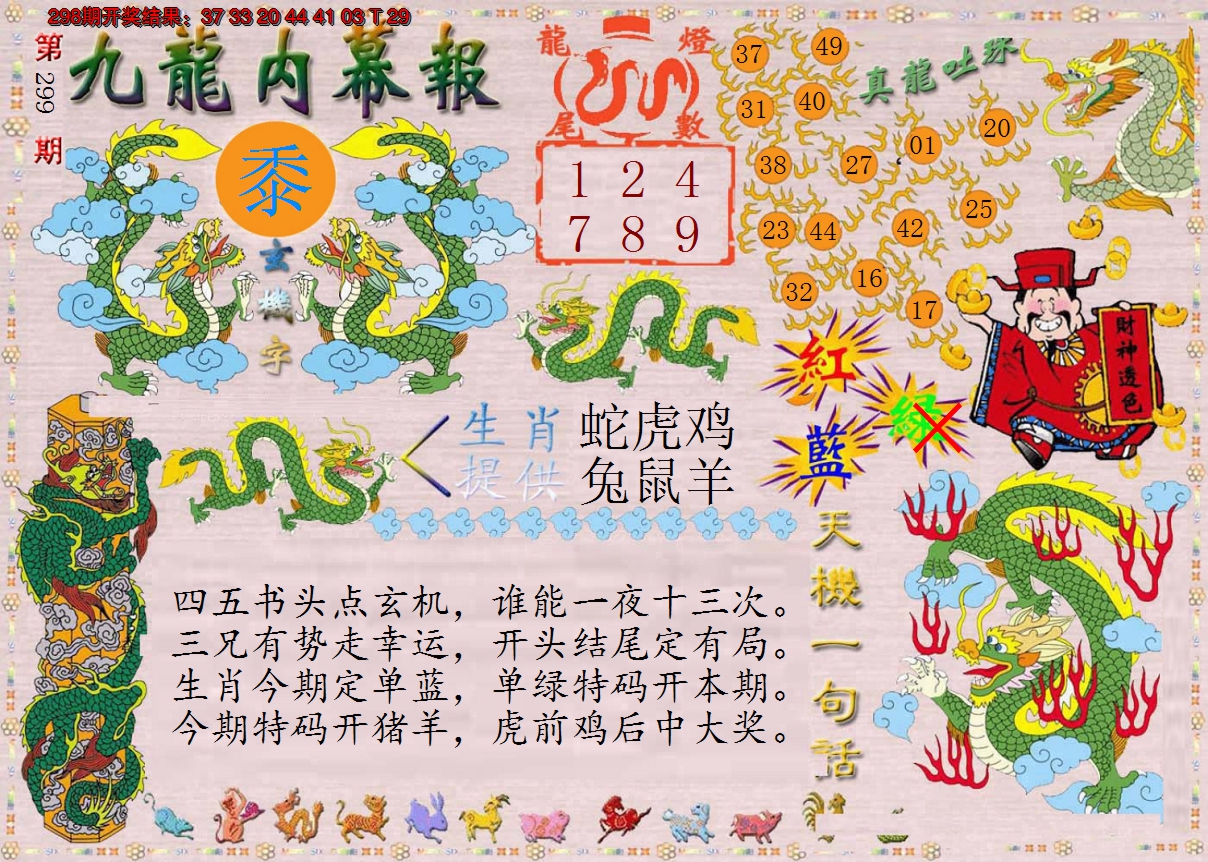 298期开奖结果：37 33 20 44 41 03 T 29
第299期
九龍内幕報
黍
玄機字
龍燈
尾數
1 2 4
7 8 9
真龍吐珠
37 49
31 40
38 27 01 20
23 44 42 25
32 16 17
財神透色
紅
绿
藍
生肖 蛇虎鸡
提供 兔鼠羊
天機一句话
四五书头点玄机，谁能一夜十三次。
三兄有势走幸运，开头结尾定有局。
生肖今期定单蓝，单绿特码开本期。
今期特码开猪羊，虎前鸡后中大奖。